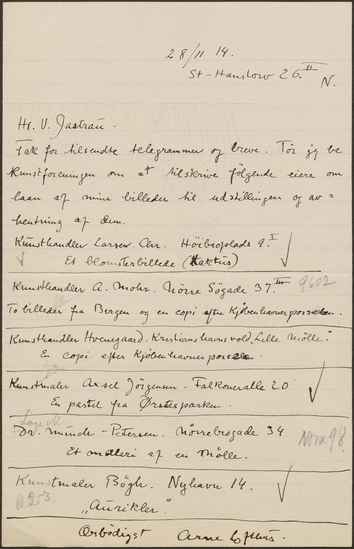 28/11 19.
St-Hanslov 26 II
N.
Hr. V. Jastrau.
Tak for tilsendte telegrammer og breve. Tör jeg be
Kunstforeningen om at tilskrive følgende eiere om
laan af mine billeder til udstillingen og av-
hentning af dem.
Kunsthandler Larsen Chr. Höibroplads 9. I
Et blomsterbillede (Kaktus)
Kunsthandler A. Mohr. Nörre Sögade 37. III 9602
To billeder fra Bergen og en copi efter
Kunsthandler Kristianshavnsvold, Lille Mölle.
En copi efter
Kunstmaler Axel Jörgensen - Falkoneralle 20
En parti fra Ørstedsparken.
Dr. Munch-Petersen. Nörrebrogade 34 Nora 98
Et af en Mölle.
Kunstmaler Bögh. Nyhavn 14.
„Aurikler."
Ærbödigst Arne Lofthus.